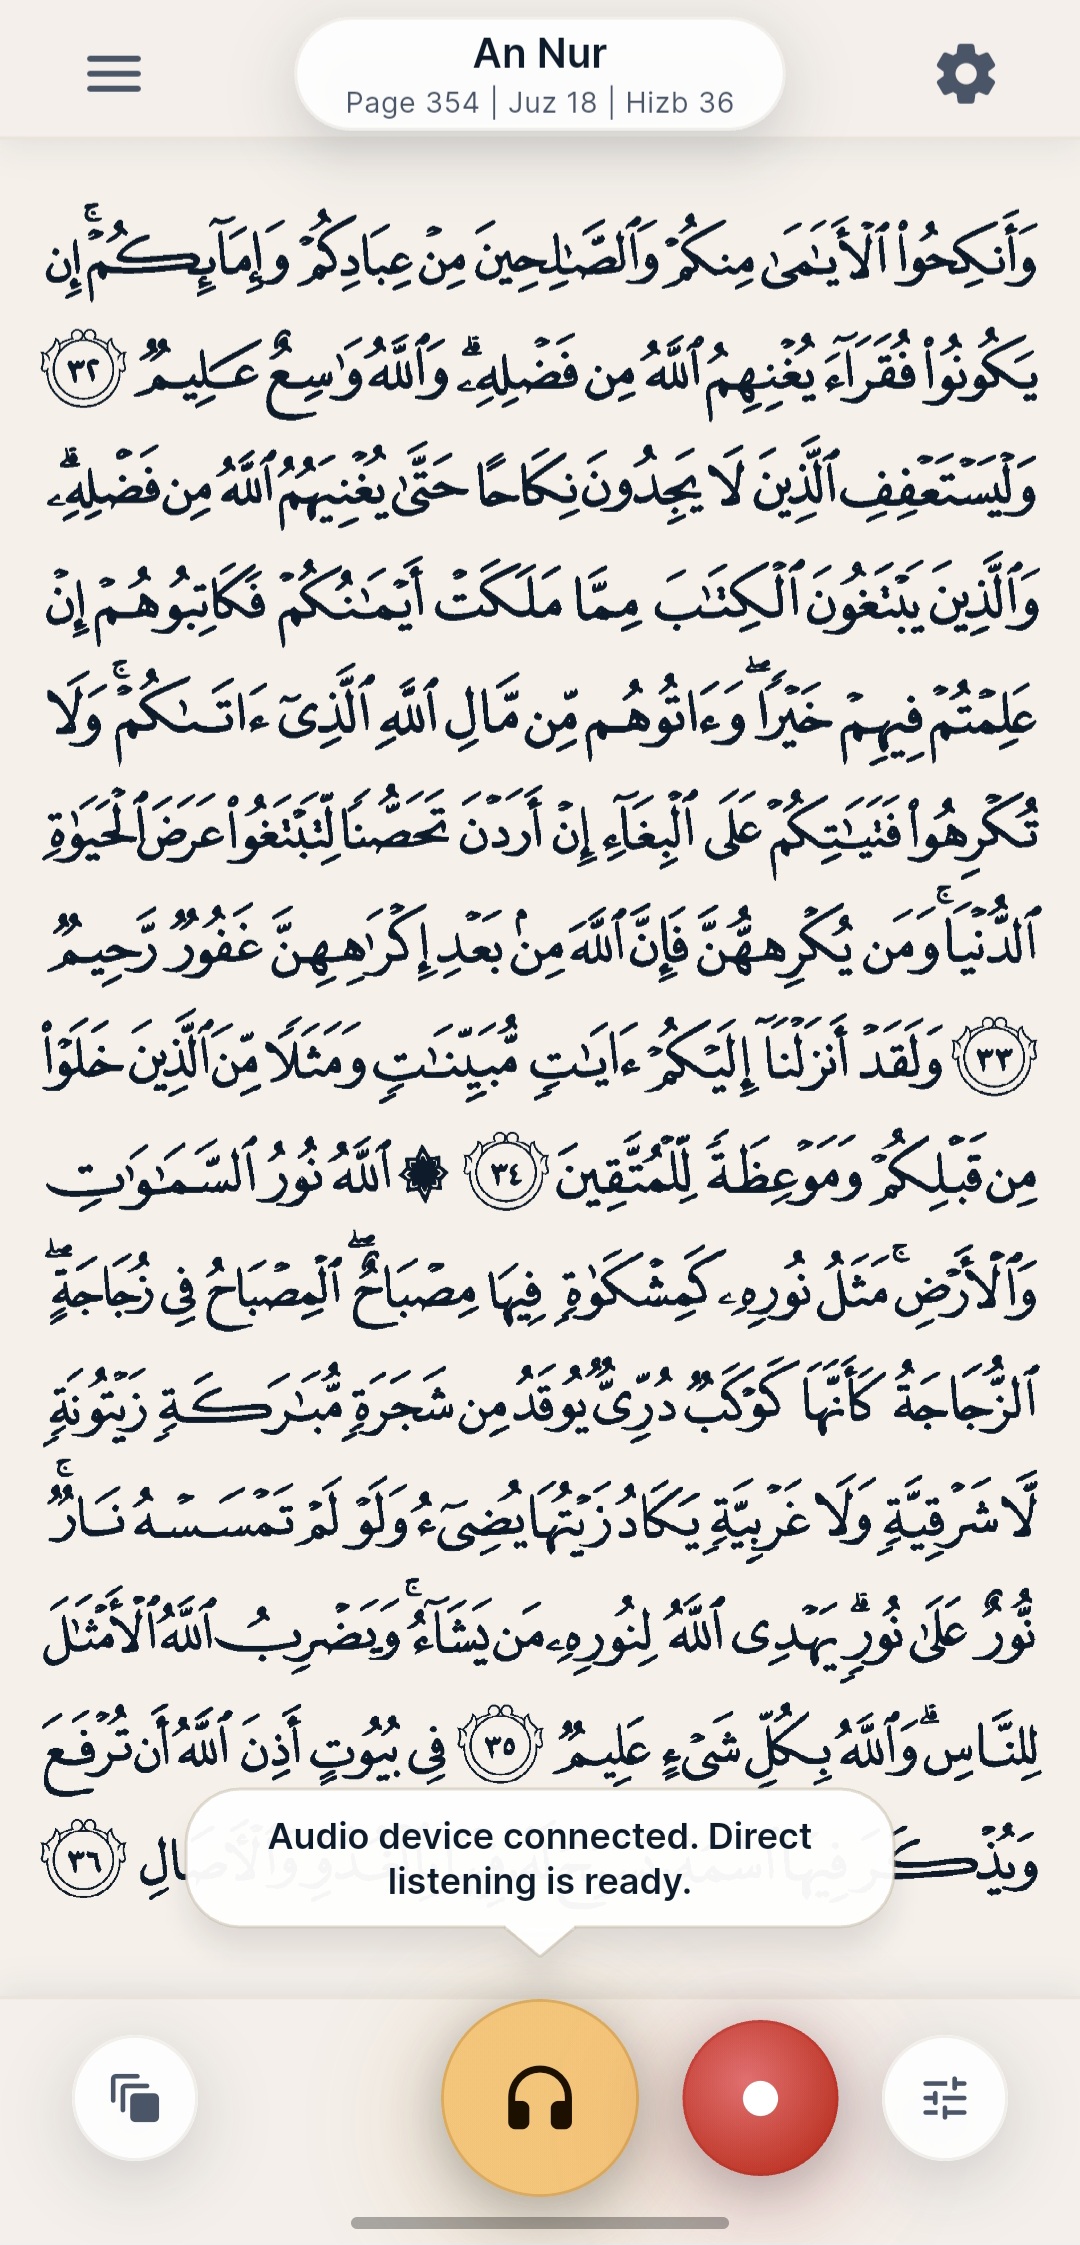 An Nur
Page 354 | Juz 18 | Hizb 36
وَأَنكِحُوا۟ ٱلْأَيَـٰمَىٰ مِنكُمْ وَٱلصَّـٰلِحِينَ مِنْ عِبَادِكُمْ وَإِمَآئِكُمْ ۚ إِن
يَكُونُوا۟ فُقَرَآءَ يُغْنِهِمُ ٱللَّهُ مِن فَضْلِهِۦ ۗ وَٱللَّهُ وَٰسِعٌ عَلِيمٌ ٣٢
وَلْيَسْتَعْفِفِ ٱلَّذِينَ لَا يَجِدُونَ نِكَاحًا حَتَّىٰ يُغْنِيَهُمُ ٱللَّهُ مِن فَضْلِهِۦ
وَٱلَّذِينَ يَبْتَغُونَ ٱلْكِتَـٰبَ مِمَّا مَلَكَتْ أَيْمَـٰنُكُمْ فَكَاتِبُوهُمْ إِنْ
عَلِمْتُمْ فِيهِمْ خَيْرًا ۖ وَءَاتُوهُم مِّن مَّالِ ٱللَّهِ ٱلَّذِىٓ ءَاتَىٰكُمْ ۚ وَلَا
تُكْرِهُوا۟ فَتَيَـٰتِكُمْ عَلَى ٱلْبِغَآءِ إِنْ أَرَدْنَ تَحَصُّنًا لِّتَبْتَغُوا۟ عَرَضَ ٱلْحَيَوٰةِ
ٱلدُّنْيَا ۚ وَمَن يُكْرِههُّنَّ فَإِنَّ ٱللَّهَ مِنۢ بَعْدِ إِكْرَٰهِهِنَّ غَفُورٌ رَّحِيمٌ
٣٣ وَلَقَدْ أَنزَلْنَآ إِلَيْكُمْ ءَايَـٰتٍ مُّبَيِّنَـٰتٍ وَمَثَلًا مِّنَ ٱلَّذِينَ خَلَوْا۟
مِن قَبْلِكُمْ وَمَوْعِظَةً لِّلْمُتَّقِينَ ٣٤ ۞ ٱللَّهُ نُورُ ٱلسَّمَـٰوَٰتِ
وَٱلْأَرْضِ ۚ مَثَلُ نُورِهِۦ كَمِشْكَوٰةٍ فِيهَا مِصْبَاحٌ ۖ ٱلْمِصْبَاحُ فِى زُجَاجَةٍ ۖ
ٱلزُّجَاجَةُ كَأَنَّهَا كَوْكَبٌ دُرِّىٌّ يُوقَدُ مِن شَجَرَةٍ مُّبَـٰرَكَةٍ زَيْتُونَةٍ
لَّا شَرْقِيَّةٍ وَلَا غَرْبِيَّةٍ يَكَادُ زَيْتُهَا يُضِىٓءُ وَلَوْ لَمْ تَمْسَسْهُ نَارٌ ۚ
نُّورٌ عَلَىٰ نُورٍ ۗ يَهْدِى ٱللَّهُ لِنُورِهِۦ مَن يَشَآءُ ۚ وَيَضْرِبُ ٱللَّهُ ٱلْأَمْثَـٰلَ
لِلنَّاسِ ۗ وَٱللَّهُ بِكُلِّ شَىْءٍ عَلِيمٌ ٣٥ فِى بُيُوتٍ أَذِنَ ٱللَّهُ أَن تُرْفَعَ
٣٦
Audio device connected. Direct
listening is ready.